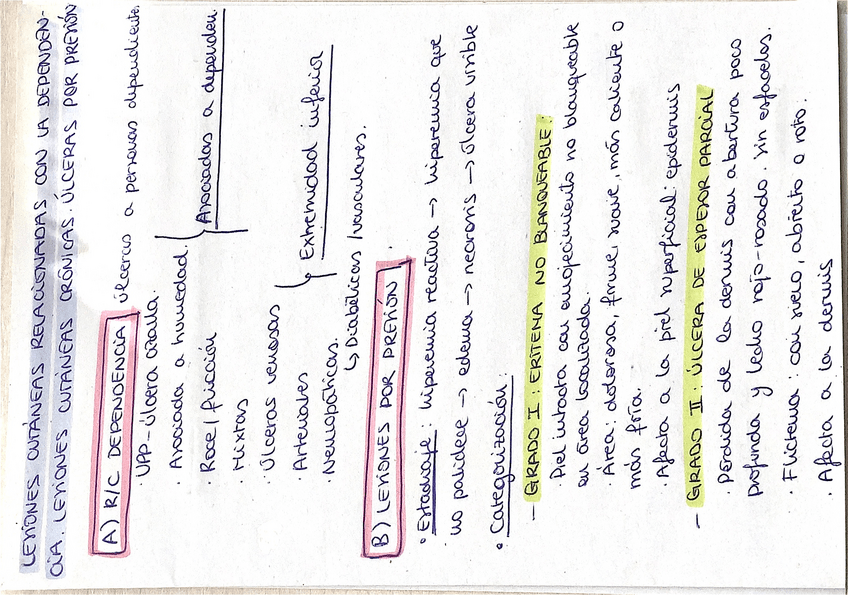 LESIONES CUTÁNEAS RELACIONADAS CON LA DEPENDEN-
CIA. LESIONES CUTÁNEAS CRÓNICAS. ÚLCERAS POR PRESIÓN
A) R/C DEPENDENCIA úlceras a personas dependientes.
· UPP - Úlcera
· Asociada a humedad. Asociadas a dependen.
· Roce/fricción
· Mixtas
· Úlceras venosas
· Arteriales Extremidad inferior
· Neuropáticas.
↳ Diabéticas/vasculares.
B) LESIONES POR PRESIÓN.
• Estadiaje: hiperemia reactiva → hiperemia que
no palidece → edema → necrosis → úlcera visible
• Categorización:
- GRADO I: ERITEMA NO BLANQUEABLE:
· Piel intacta con enrojecimiento no blanqueable
en área localizada.
· Área: dolorosa, firme, suave, más caliente o
más fría.
· Afecta a la piel superficial: epidermis
- GRADO II: ÚLCERA DE ESPESOR PARCIAL
· Pérdida de la dermis con abertura poco
profunda y lecho rojo-rosado. Sin esfacelos.
· Flictena: con suero, abierto o roto.
· Afecta a la dermis